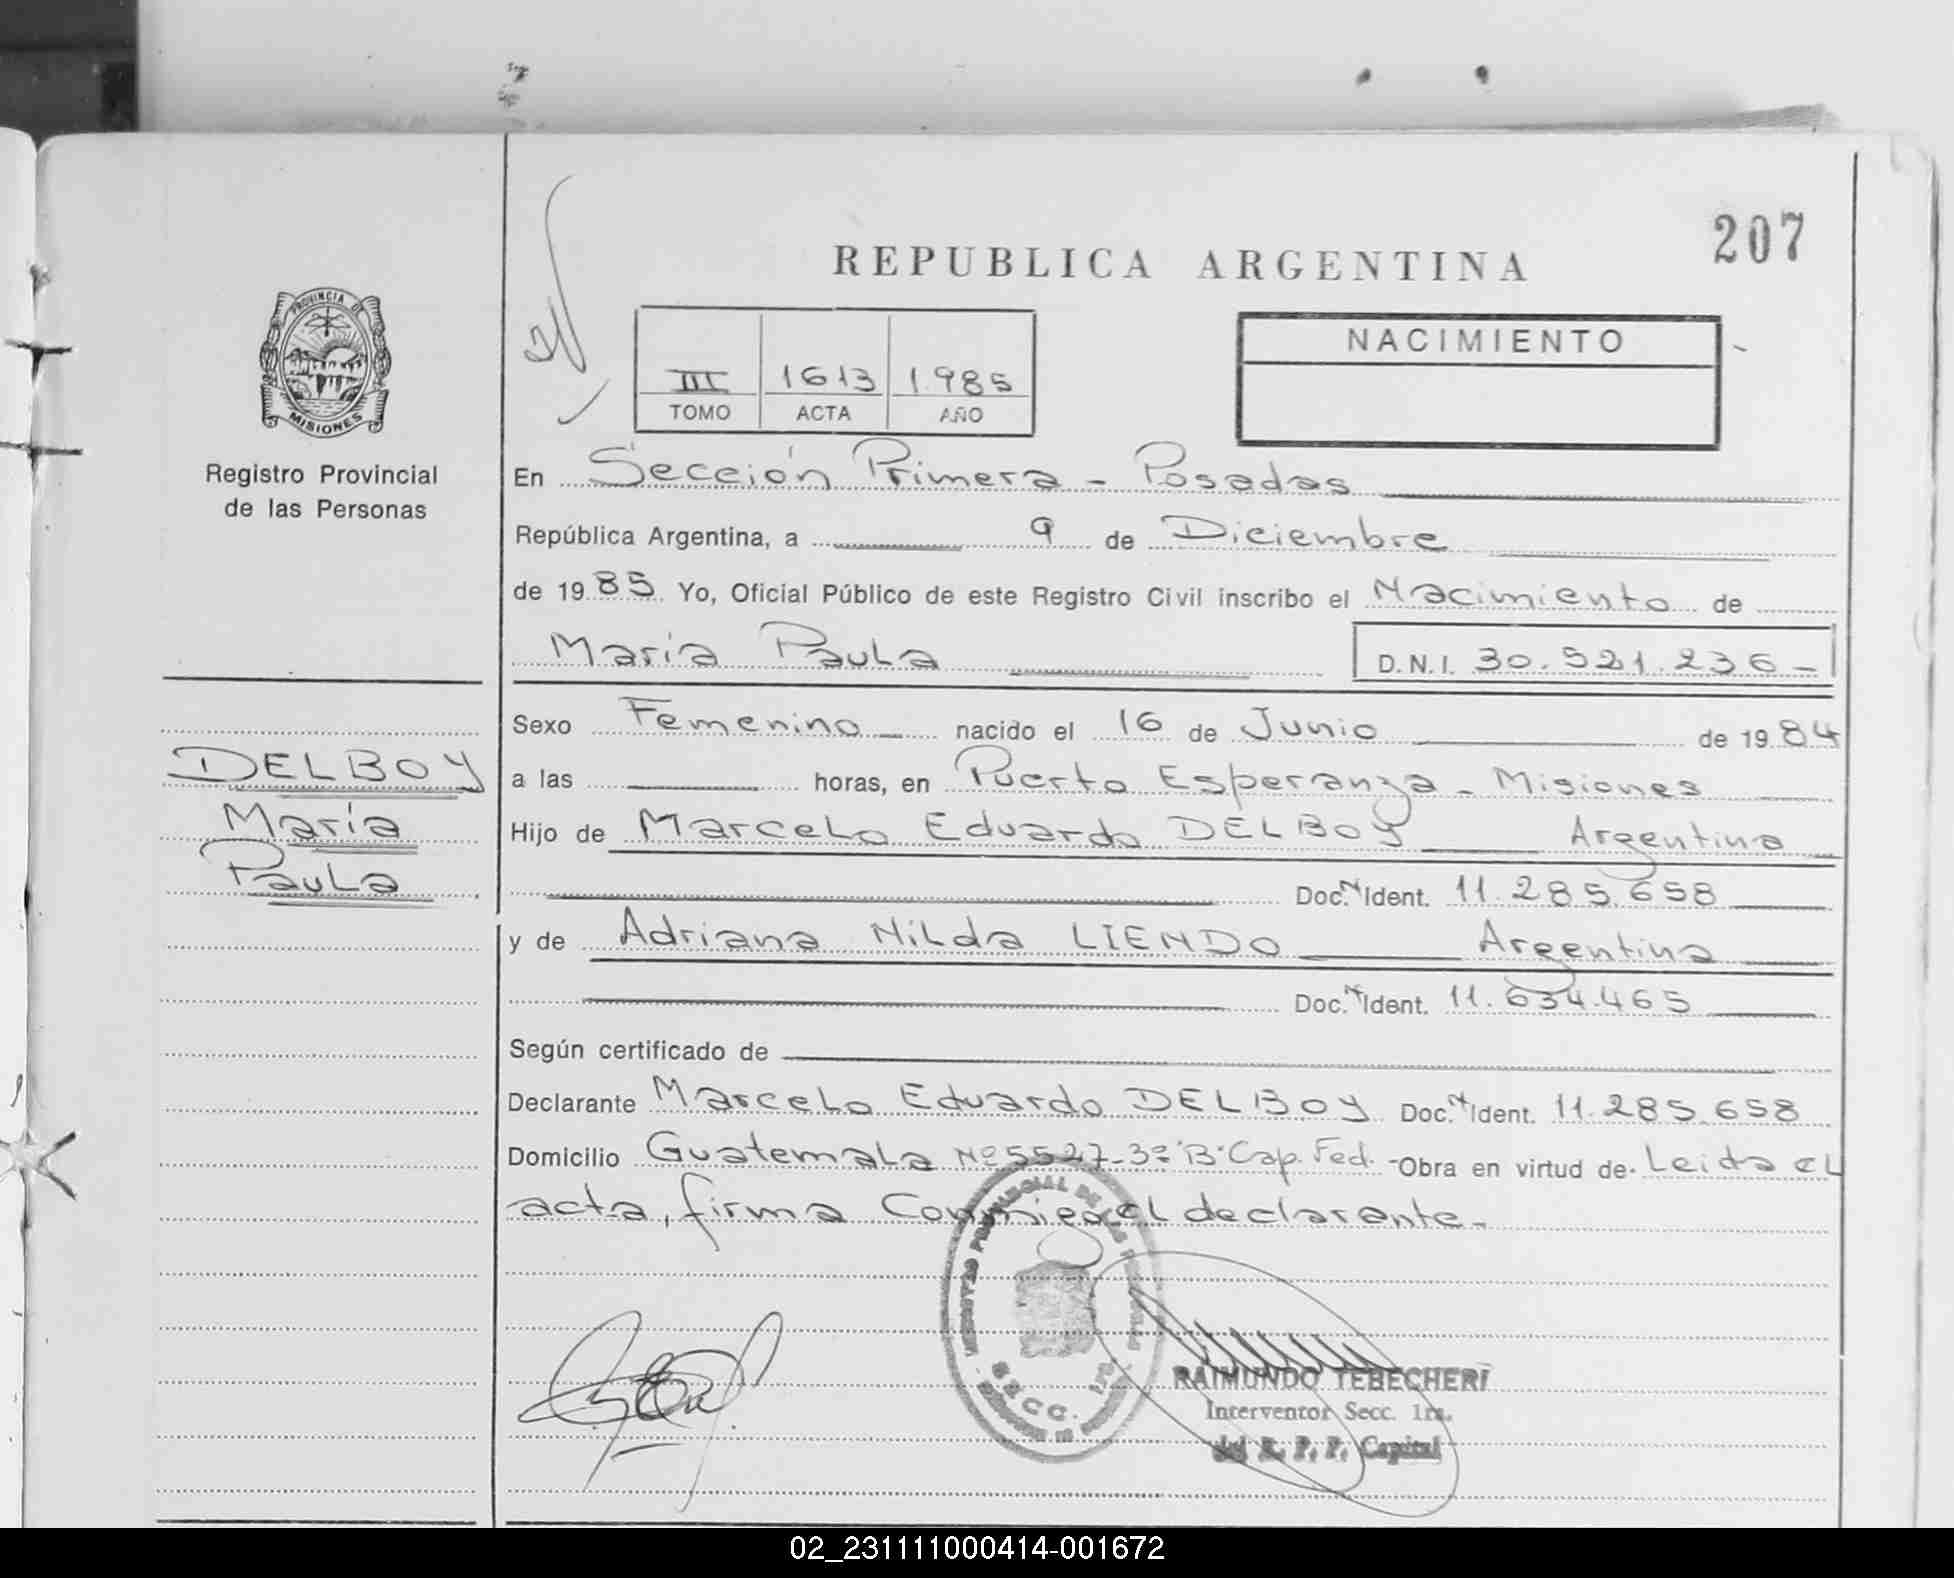 207
REPUBLICA ARGENTINA
PROVINCIA DE
MISIONES
Registro Provincial
de las Personas
III 1613 1985
TOMO ACTA AÑO
NACIMIENTO
En Sección Primera - Posadas
República Argentina, a 9 de Diciembre
de 1985 Yo, Oficial Público de este Registro Civil inscribo el Nacimiento de
María Paula D.N.I. 30.521.236-
Sexo Femenino nacido el 16 de Junio de 1984
DELBOY
María
Paula
a las horas, en Puerto Esperanza - Misiones
Hijo de Marcelo Eduardo DELBOY Argentina
Doc. Ident. 11.285.658
y de Adriana Nilda LIENDO Argentina
Doc. Ident. 11.634.465
Según certificado de
Declarante Marcelo Eduardo DELBOY Doc. Ident. 11.285.658
Domicilio Guatemala Nº 5527-3º "B" Cap. Fed. - Obra en virtud de. Leida el
acta, firma Conmigo el declarante.
RAIMUNDO TEBECHERI
Interventor Secc. 1ra.
del R. P. P. Capital
02_231111000414-001672